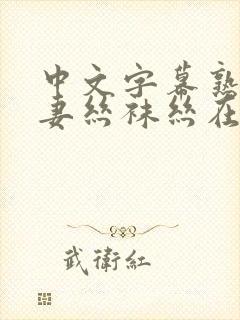 中文字幕熟
妻丝袜丝在
武衛紅